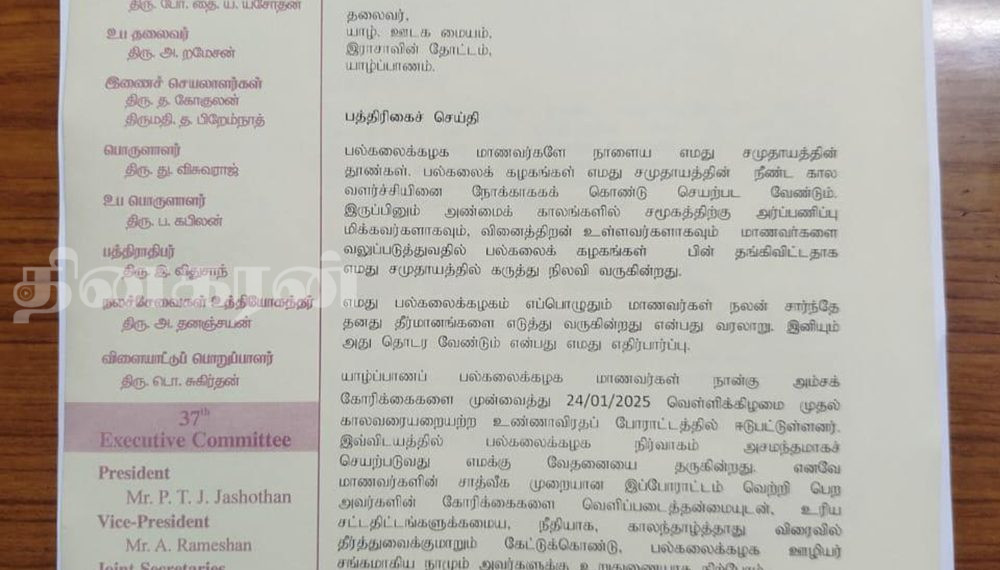 திரு. போ. தை. ய. யசோதன்
உப தலைவர்
திரு. அ. றமேசன்
இணைச் செயலாளர்கள்
திரு. த. கோகுலன்
திருமதி. த. பிறேம்நாத்
பொருளாளர்
திரு. து. விசுவராஜ்
உப பொருளாளர்
திரு. ப. கபிலன்
பத்திராதிபர்
திரு. இ. விதுசாந்
நலச்சேவைகள் உத்தியோகத்தர்
திரு. அ. தனஞ்சயன்
விளையாட்டுப் பொறுப்பாளர்
திரு. டொ. சுகிர்தன்
37th
Executive Committee
President
Mr. P. T. J. Jashothan
Vice-President
Mr. A. Rameshan
Joint Secretaries
தலைவர்,
யாழ். ஊடக மையம்,
இராசாவின் தோட்டம்,
யாழ்ப்பாணம்.
பத்திரிகைச் செய்தி
பல்கலைக்கழக மாணவர்களே நாளைய எமது சமுதாயத்தின்
தூண்கள். பல்கலைக் கழகங்கள் எமது சமுதாயத்தின் நீண்ட கால
வளர்ச்சியினை நோக்காககக் கொண்டு செயற்பட வேண்டும்.
இருப்பினும் அண்மைக் காலங்களில் சமூகத்திற்கு அர்ப்பணிப்பு
மிக்கவர்களாகவும், வினைத்திறன் உள்ளவர்களாகவும் மாணவர்களை
வலுப்படுத்துவதில் பல்கலைக் கழகங்கள் பின் தங்கிவிட்டதாக
எமது சமுதாயத்தில் கருத்து நிலவி வருகின்றது.
எமது பல்கலைக்கழகம் எப்பொழுதும் மாணவர்கள் நலன் சார்ந்தே
தனது தீர்மானங்களை எடுத்து வருகின்றது என்பது வரலாறு. இனியும்
அது தொடர வேண்டும் என்பது எமது எதிர்பார்ப்பு.
யாழ்ப்பாணப் பல்கலைக்கழக மாணவர்கள் நான்கு அம்சக்
கோரிக்கைகளை முன்வைத்து 24/01/2025 வெள்ளிக்கிழமை முதல்
காலவரையறையற்ற உண்ணாவிரதப் போராட்டத்தில் ஈடுபட்டுள்ளனர்.
இவ்விடயத்தில் பல்கலைக்கழக நிர்வாகம் அசமந்தமாகச்
செயற்படுவது எமக்கு வேதனையை தருகின்றது. எனவே
மாணவர்களின் சாத்வீக முறையான இப்போராட்டம் வெற்றி பெற
அவர்களின் கோரிக்கைகளை வெளிப்படைத்தன்மையுடன், உரிய
சட்டதிட்டங்களுக்கமைய, நீதியாக, காலந்தாழ்த்தாது விரைவில்
தீர்த்துவைக்குமாறும் கேட்டுக்கொண்டு, பல்கலைக்கழக ஊழியர்
சங்கமாகிய நாமும் அவர்களுக்கு உறுதுணையாக நிற்போம்
தினகரன்